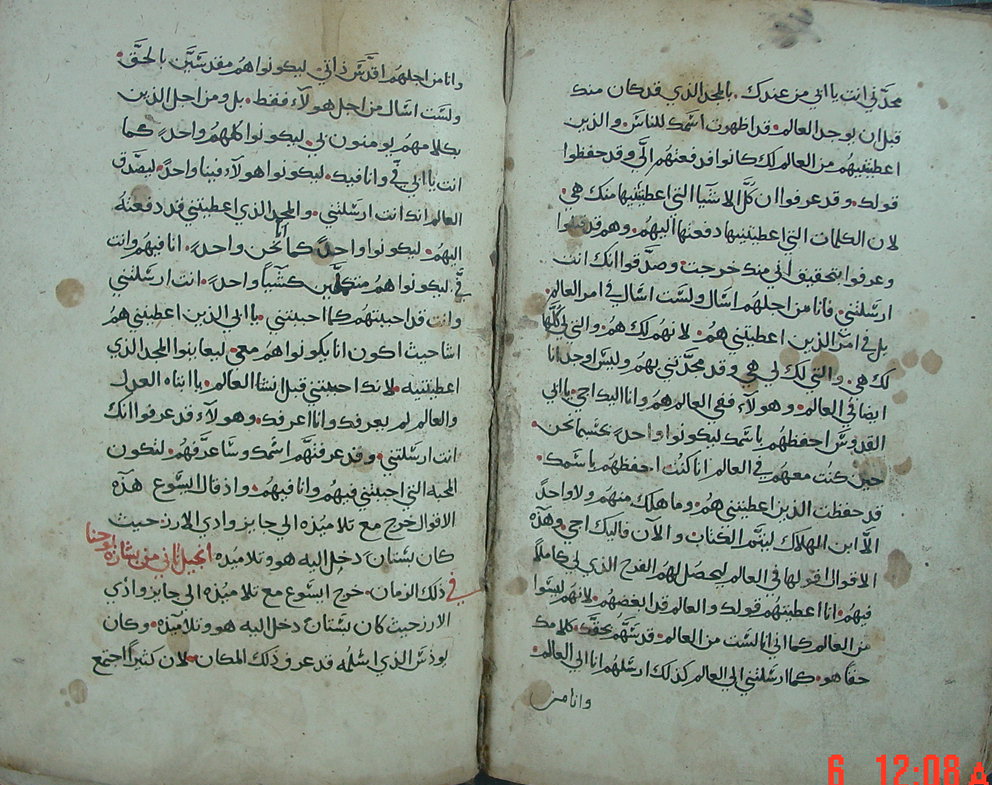 مجدني انت يا ابي من عندك. بالمجد الذي قد كان منك
قبل ان يوجد العالم. قد اظهرت اسمك للناس. والذين
اعطيتنيهم من العالم لك كانوا قد دفعتهم الي وقد حفظوا
قولك. وقد عرفوا ان كل الاشيا التي اعطيتنيها منك هي.
لان الكلمات التي اعطيتنيها دفعتها اليهم. وهم قد قبلوا
وعرفوا بتحقيق اني منك خرجت. وصدقوا انك انت
ارسلتني. فانا من اجلهم اسال ولست اسال في امر العالم.
بل في امر الذين اعطيتني هم. لانهم لك هم. والتي لي كلها
لك هي. والتي لك لي هي وقد مجدتني بهم وليس اوجد انا
ايضا في العالم. وهولآء ففي العالم هم وانا اليك اجي. يا ابي
القدوس احفظهم باسمك ليكونوا واحدً بحسبما نحن.
حين كنت معهم في العالم انا كنت احفظهم باسمك.
قد حفظت الذين اعطيتني هم. وما هلك منهم ولا واحدً
الا ابن الهلاك ليتم الكتاب. والآن فاليك اجي. وهذه
الاقوال اقولها في العالم ليحصل لهم الفرح الذي لي كاملاً
فيهم. انا اعطيتهم قولك والعالم قد ابغضهم. لانهم ليسوا
من العالم كما اني انا لست من العالم. قدسهم بحقك. كلامك
حقا هو. كما ارسلتني الي العالم كذلك ارسلهم انا الي العالم.
وانا من
وانا من اجلهم اقدس ذاتي. ليكونوا هم مقدسين بالحق.
ولست اسال من اجل هولآء فقط. بل ومن اجل الذين
بكلامهم يومنون بي. ليكونوا كلهم واحدً. كما
انت يا ابي في وانا فيك. ليكونوا هولآء فينا واحدً. ليصدق
العالم انك انت ارسلتني. والمجد الذي اعطيتني قد دفعته
اليهم. ليكونوا واحدً كما انا نحن واحدً. انا فيهم وانت
في. ليكونوا هم متكملين كشيًا واحدً. انت ارسلتني
وانت قد احببتهم كما احببتني. يا ابي الذين اعطيتني هم
اشا حيث اكون انا يكونوا هم معي. ليعاينوا المجد الذي
اعطيتنيه. لانك احببتني قبل انشا العالم. يا ابتاه العدل
والعالم لم يعرفك وانا اعرفك. وهولآء قد عرفوا انك
انت ارسلتني. وقد عرفتهم اسمك وساعرفهم. لتكون
المحبه التي احببتني فيهم وانا فيهم. واذ قال ايسوع هذه
الاقوال خرج مع تلاميذه الي جايز وادي الارز حيث
كان بستان دخل اليه هو وتلاميذه انجيل ثاني من بشارة يوحنا
في ذلك الزمان. خرج ايسوع مع تلاميذه الي جايز وادي
الارز حيث كان بستان دخل اليه هو وتلاميذه. وكان
يوذس الذي اسلمه قد عرف ذلك المكان. لان كثيرًا اجتمع
6 12:08 A